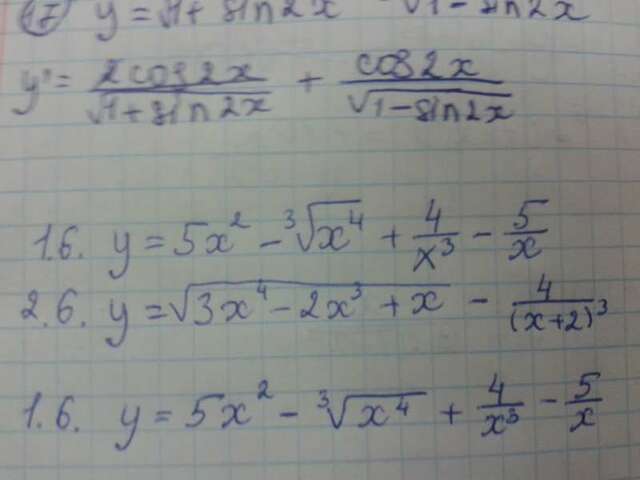 17) y = √1 + sin2x - √1 - sin2x
y' = 2cos2x/√(1 + sin2x) + cos2x/√(1 - sin2x)
1.6. y = 5x² - ³√(x⁴) + 4/x³ - 5/x
2.6. y = √(3x⁴ - 2x³ + x) - 4/(x+2)³
1.6. y = 5x² - ³√(x⁴) + 4/x³ - 5/x